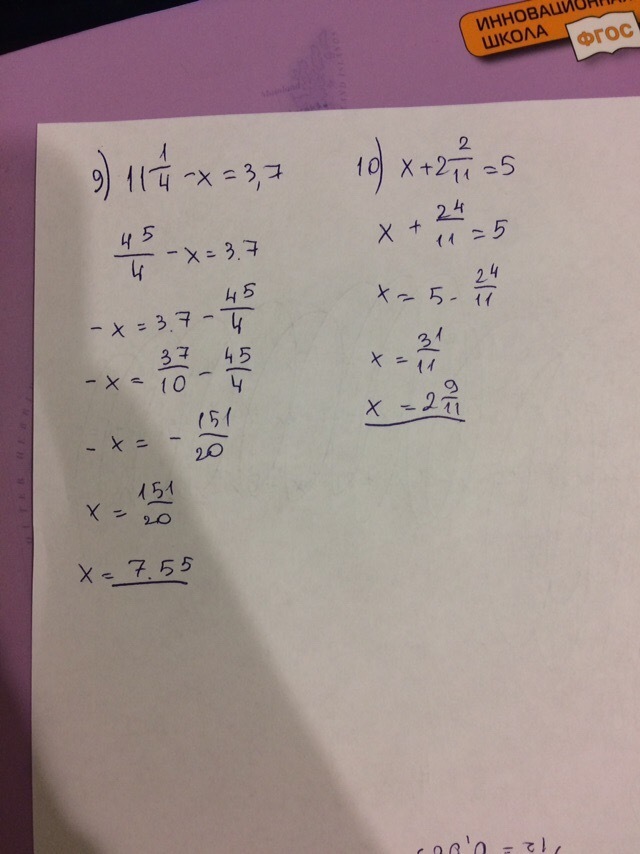 ИННОВАЦИОННАЯ
ШКОЛА ФГОС
9) 11 1/4 - x = 3,7
45/4 - x = 3.7
- x = 3.7 - 45/4
- x = 37/10 - 45/4
- x = - 151/20
x = 151/20
x = 7.55
10) x + 2 2/11 = 5
x + 24/11 = 5
x = 5 - 24/11
x = 31/11
x = 2 9/11